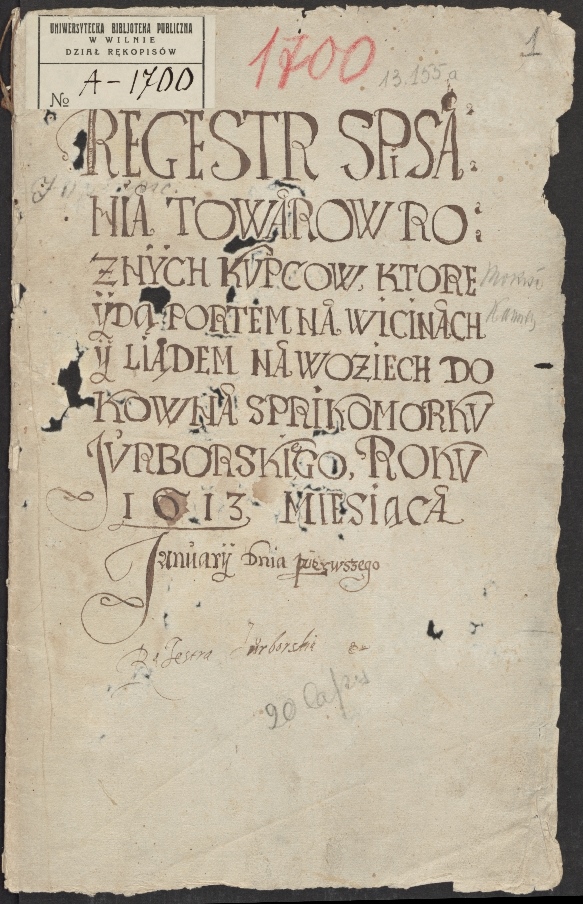 UNIWERSYTECKA BIBLIOTEKA PUBLICZNA
W WILNIE
DZIAŁ RĘKOPISÓW
№ A-1700
1700
13.155a
1
REGESTR SPiSÅ:
NIA TOWÅROW RO:
ZNÿCH KVPCOW, KTORE
ÿDĄ PORTEM NÅ WICINÅCH
ÿ LIĄDEM NÅ WOZIECH DO
KOWNÅ SPRIKOMORKV
JVRBORSKIĘGO, ROKV
1613 MIESIĄCÅ
Januarÿ Dnia pierwszego
Rejestra Jurborski
90